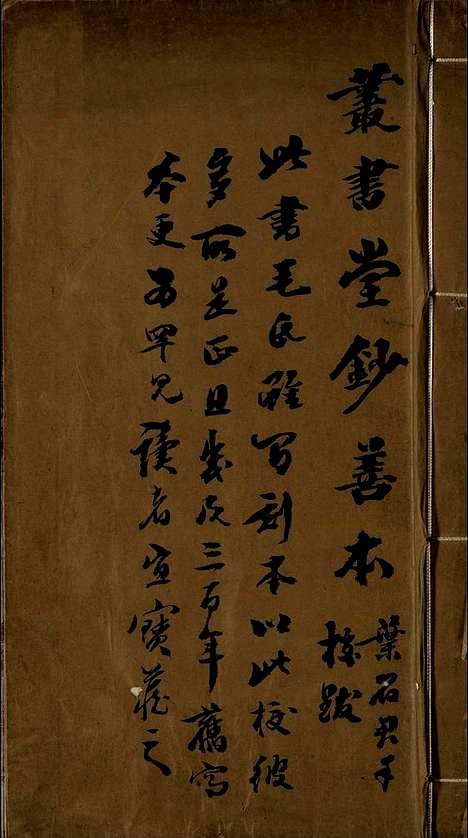 叢書堂鈔善本
葉石君手
校跋
此書毛氏雖写刻本以此校彼
多所是正且幾及三百年舊寫
本更為罕見讀者宜寶藏之